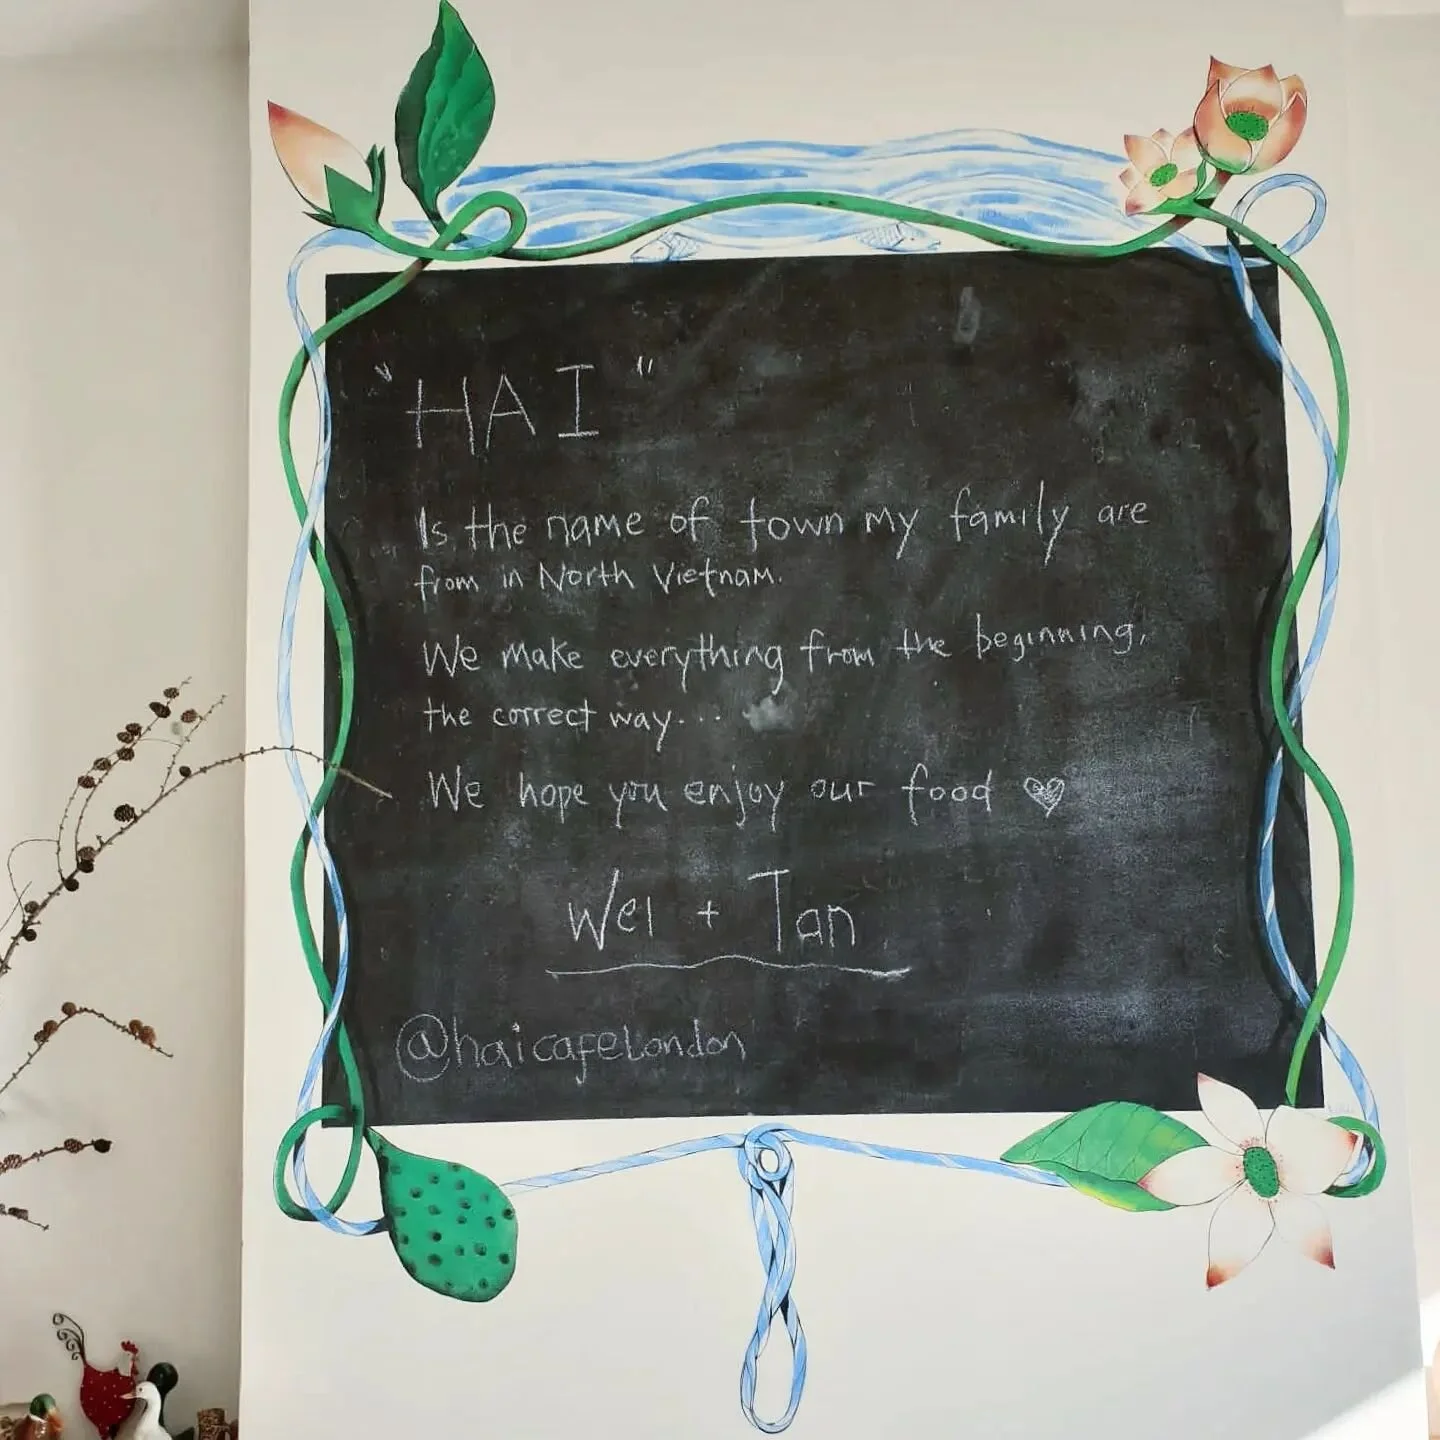 "HAI"
Is the name of town my family are
from in North Vietnam.
We make everything from the beginning,
the correct way...
We hope you enjoy our food ♡
Wei + Tan
@haicafeLondon